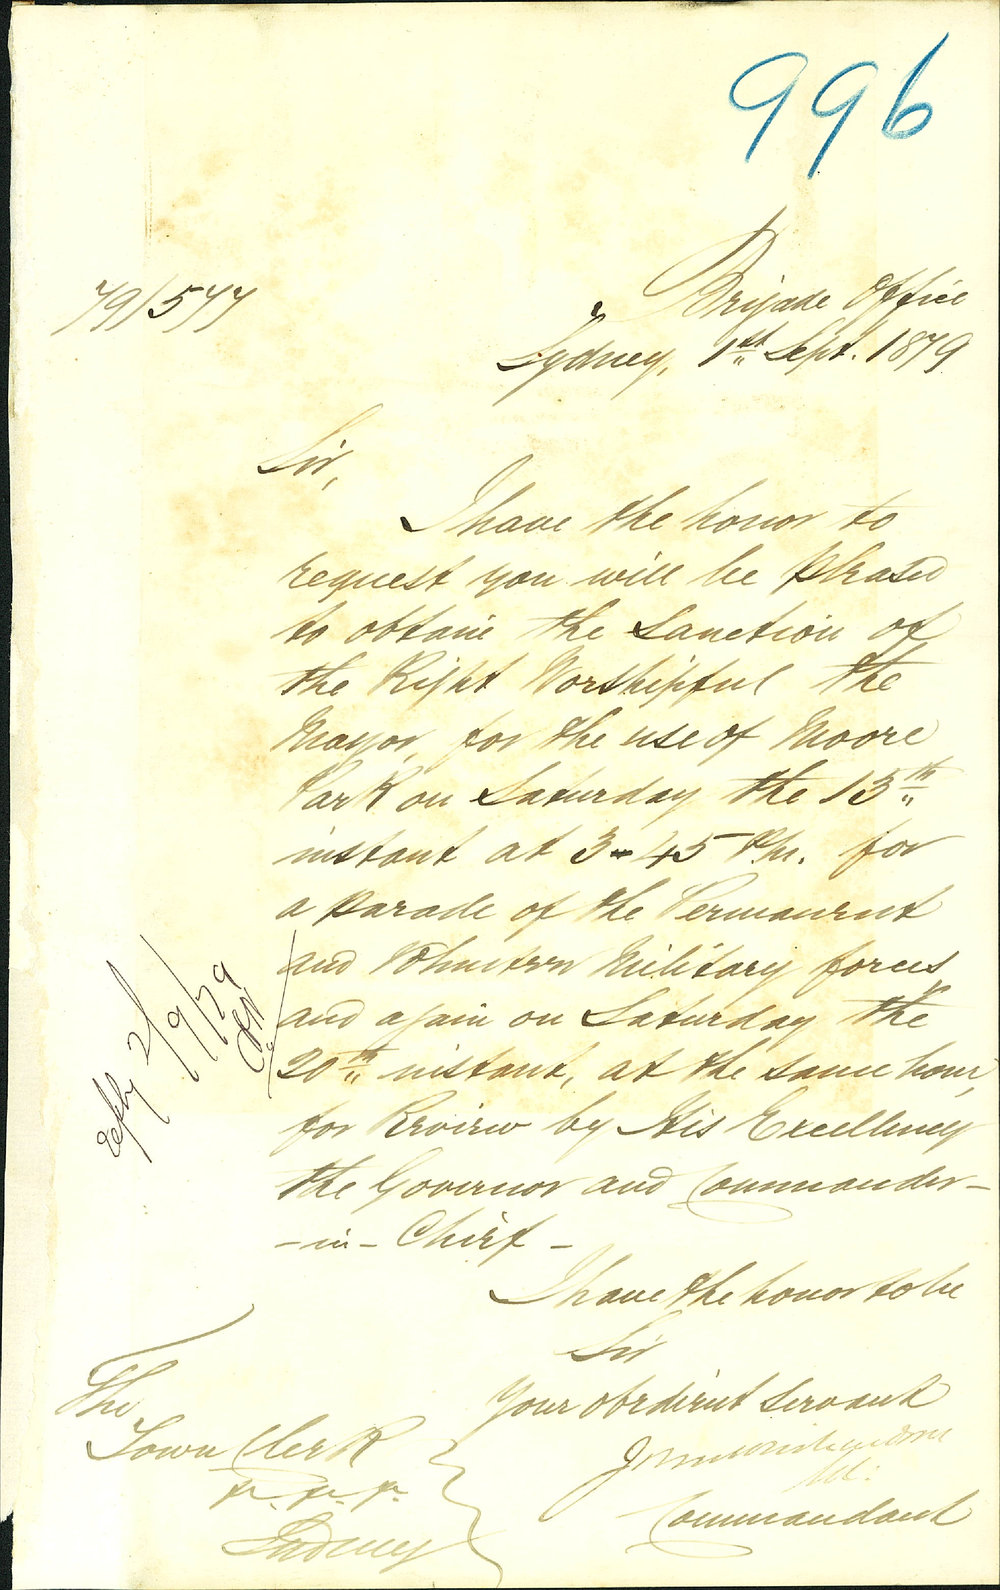 996
79/577
Brigade Office
Sydney, 1st Sept. 1879
Sir,
I have the honor to
request you will be pleased
to obtain the sanction of
the Right Worshipful the
Mayor, for the use of Moore
Park on Saturday the 13th
instant at 3-45 P.m. for
a parade of the Permanent
and Volunteer Military forces,
and again on Saturday the
20th instant, at the same hour,
for Review by His Excellency
the Governor and Commander-
-in-Chief-
I have the honor to be
Sir
Your obedient servant
Commandant
The
Town Clerk
&c. &c. &c.
Sydney
2/9/79